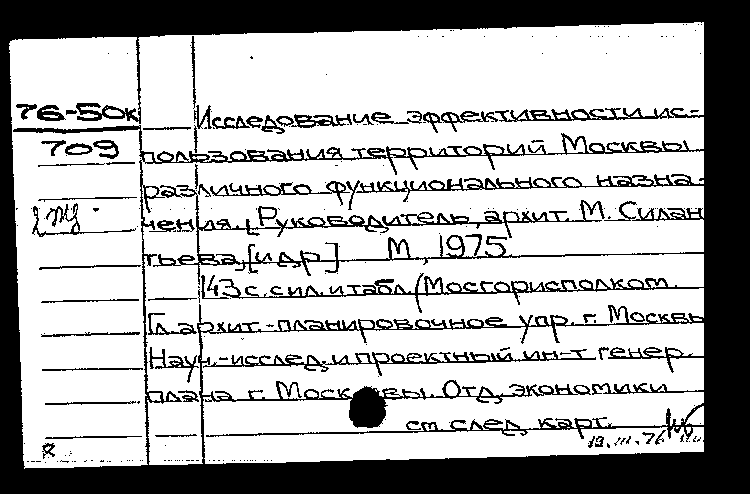 76-50к
709
Исследование эффективности ис-
пользования территорий Москвы
различного функционального назна-
чения. [Руководитель, архит. М. Силан
тьева, [и др] М, 1975
143 с. с ил. и табл. (Мосгорисполком.
Гл. архит.-планировочное упр. г. Москвы
Науч.-исслед. и проектный ин-т генер.
плана г. Москвы. Отд. экономики
см след. карт.
19.III.76